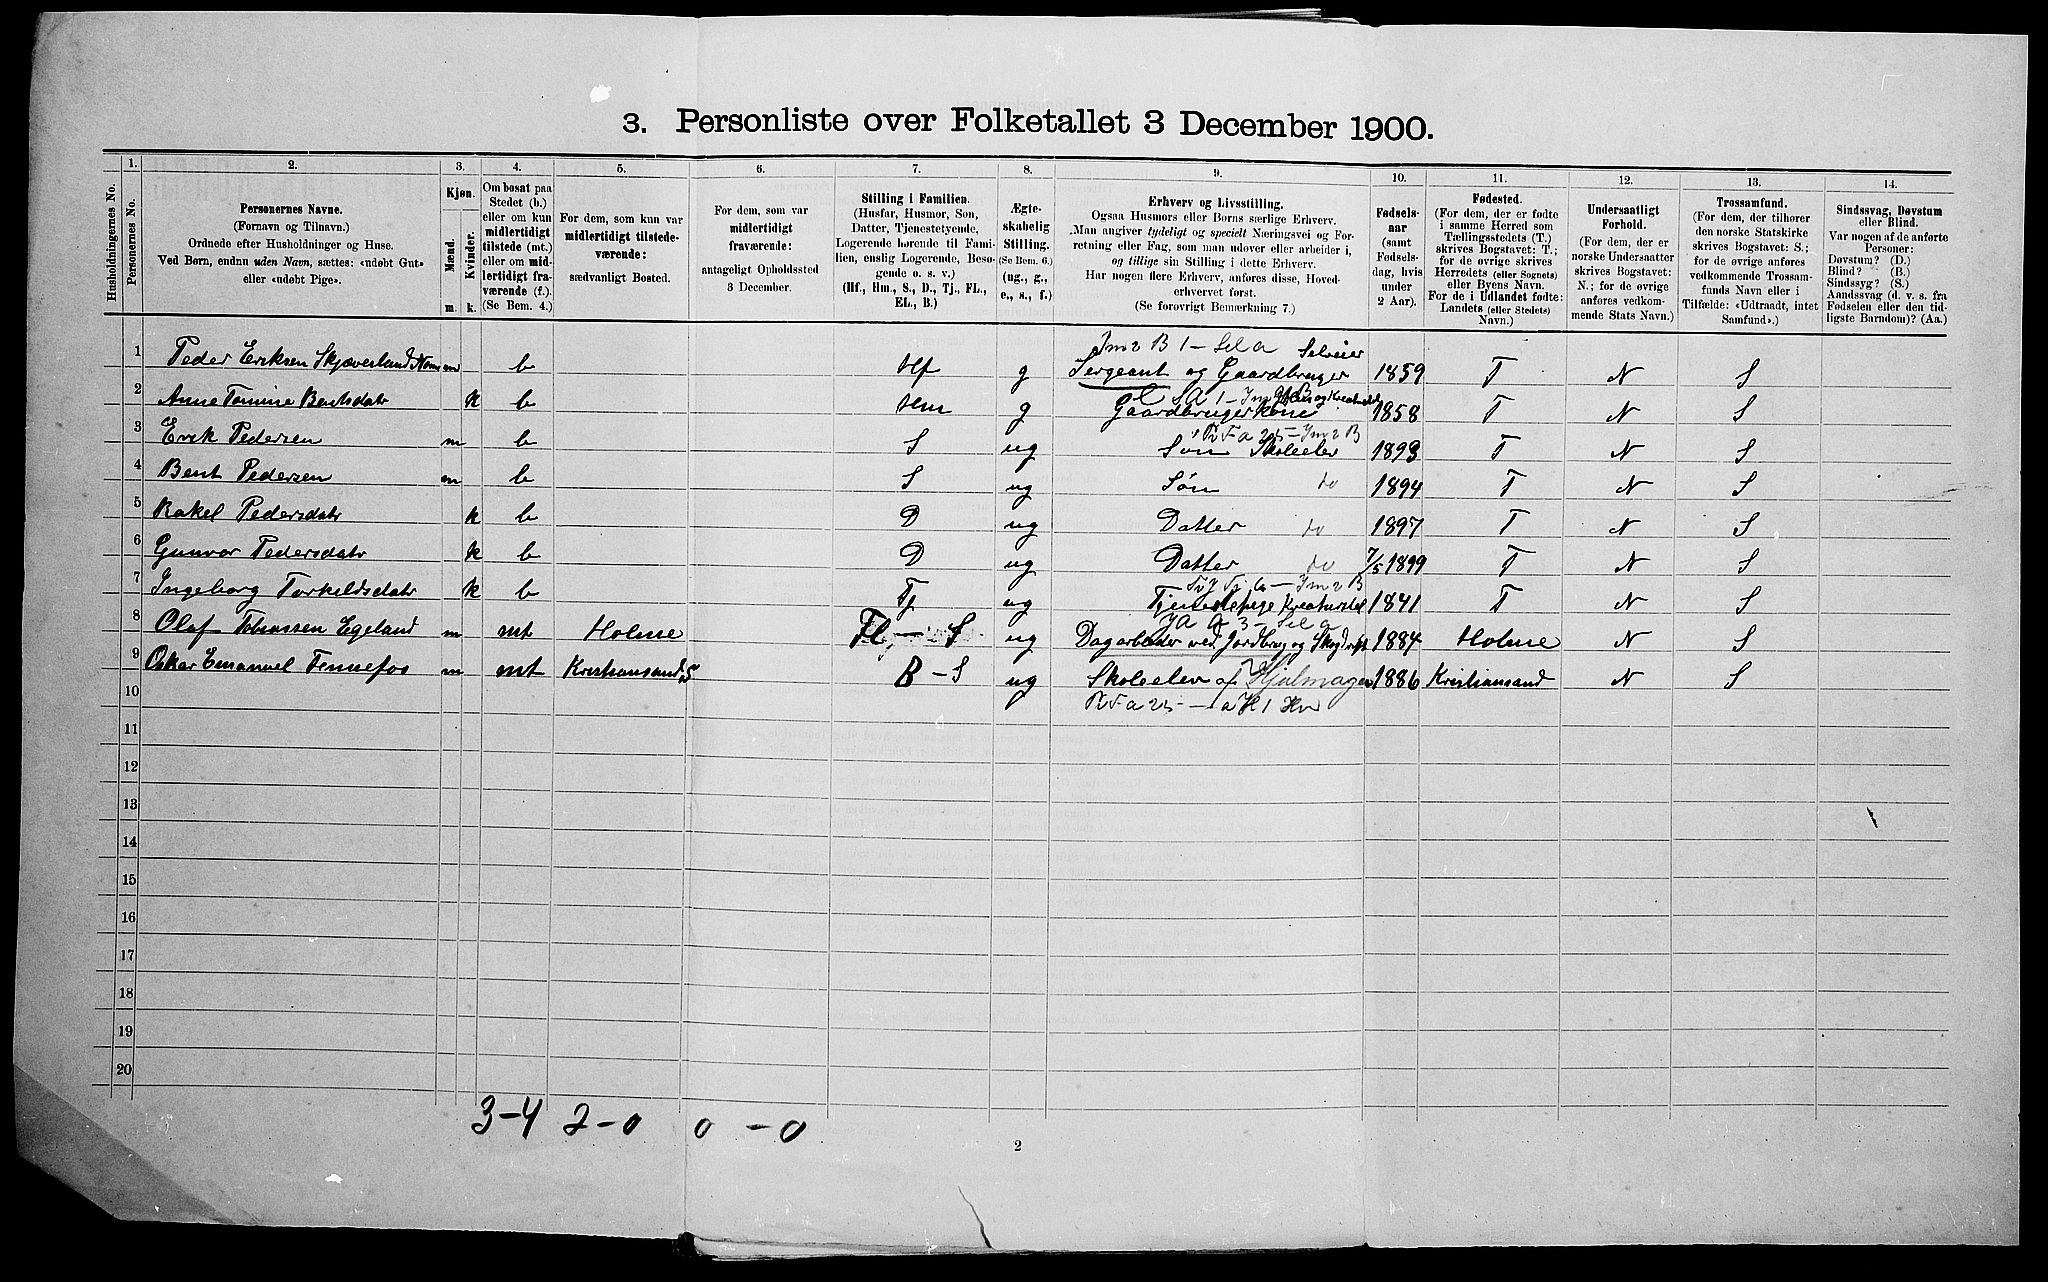 3. Personliste over Folketallet 3 December 1900.
1. 2. 3. 4. 5. 6. 7. 8. 9. 10. 11. 12. 13. 14.
Husholdningernes No.
Personernes No.
Personernes Navne.
(Fornavn og Tilnavn.)
Ordnede efter Husholdninger og Huse.
Ved Børn, endnu uden Navn, sættes: «udøbt Gut»
eller «udøbt Pige».
Kjøn.
Mænd.
Kvinder.
m. k.
Om bosat paa
Stedet (b.)
eller om kun
midlertidigt
tilstede (mt.)
eller om mid-
lertidigt fra-
værende (f.).
(Se Bem. 4.)
For dem, som kun var
midlertidigt tilstede-
værende:
sædvanligt Bosted.
For dem, som var
midlertidigt
fraværende:
antageligt Opholdssted
3 December.
Stilling i Familien.
(Husfar, Husmor, Søn,
Datter, Tjenestetyende,
Logerende hørende til Fami-
lien, enslig Logerende, Besø-
gende o. s. v.)
(Hf., Hm., S., D., Tj., FL.,
EL., B.)
Ægte-
skabelig
Stilling.
(Se Bem. 6.)
(ug., g.,
e., s., f.)
Erhverv og Livsstilling.
Ogsaa Husmors eller Børns særlige Erhverv.
Man angiver tydeligt og specielt Næringsvei og For-
retning eller Fag, som man udøver eller arbeider i,
og tillige sin Stilling i dette Erhverv.
Har nogen flere Erhverv, anføres disse, Hoved-
erhvervet først.
(Se forøvrigt Bemærkning 7.)
Fødsels-
aar
(samt
Fødsels-
dag, hvis
under
2 Aar).
Fødested.
(For dem, der er fødte
i samme Herred som
Tællingsstedets (T.)
skrives Bogstavet: T.;
for de øvrige skrives
Herredets (eller Sognets)
eller Byens Navn.
For de i Udlandet fødte:
Landets (eller Stedets)
Navn.)
Undersaatligt
Forhold.
(For dem, der er
norske Undersaatter
skrives Bogstavet:
N.; for de øvrige
anføres vedkom-
mende Stats Navn.)
Trossamfund.
(For dem, der tilhører
den norske Statskirke
skrives Bogstavet: S.;
for de øvrige anføres
vedkommende Trossam-
funds Navn eller i
Tilfælde: «Udtraadt, intet
Samfund».)
Sindssvag, Døvstum
eller Blind.
Var nogen af de anførte
Personer:
Døvstum? (D.)
Blind? (B.)
Sindssyg? (S.)
Aandssvag (d. v. s. fra
Fødselen eller den tid-
ligste Barndom)? (Aa.)
Im 2 B 1 – Sel a Selveier
1 Peder Eriksen Skjæverland m b Hf g Sergeant og Gaardbruger 1859 T N S
2 Anne Tomine Bentsdatr k b Hm g Gaardbrugerkone 1858 T N S
Fa 25 – Im 2 B
3 Erik Pedersen m b S ug Søn Skoleelev 1893 T N S
4 Bent Pedersen m b S ug Søn do 1894 T N S
5 Rakel Pedersdatr k b D ug Datter do 1897 T N S
6 Gunvor Pedersdatr k b D ug Datter do 7/5 1899 T N S
Im 2 B
7 Ingeborg Torkeldsdatr k b Tj ug Tjenestepige Kreaturstel 1841 T N S
3 – Sel a
8 Olaf Tobiassen Egeland m mt Holme Fl – S ug Dagarbeider ved Jordbrug og Skogdrift 1884 Holme N S
9 Oskar Emanuel Tennefos m mt Kristiansand S B – S ug Skoleelev af Hjulmager 1886 Kristiansand N S
Fa 25 – a H 1 Hv
10
11
12
13
14
15
16
17
18
19
20
3–4 2–0 0–0
2